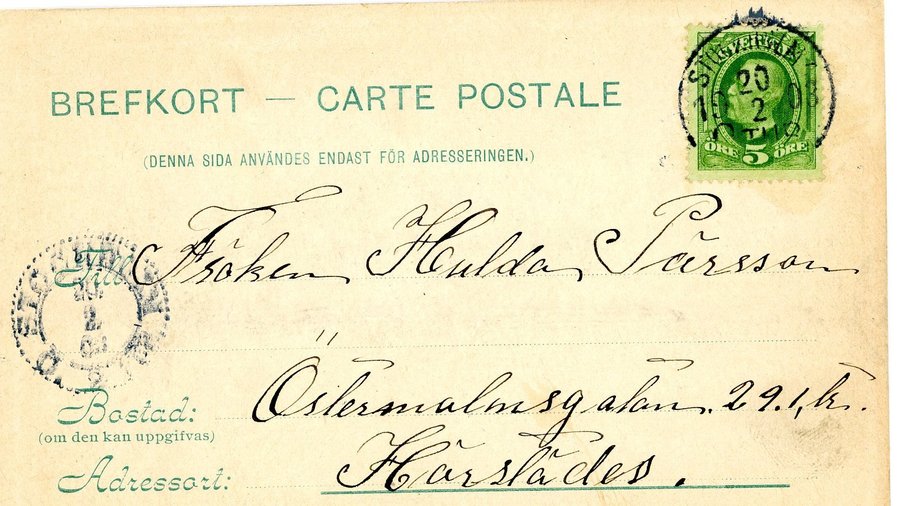 BREFKORT — CARTE POSTALE
(DENNA SIDA ANVÄNDES ENDAST FÖR ADRESSERINGEN.)
SVERIGE
20
2
ÖRE 5 ÖRE
Till Fröken Hulda Pärsson
Bostad: Östermalmsgatan. 29.1, tr.
(om den kan uppgifvas)
Adressort: Härstädes.